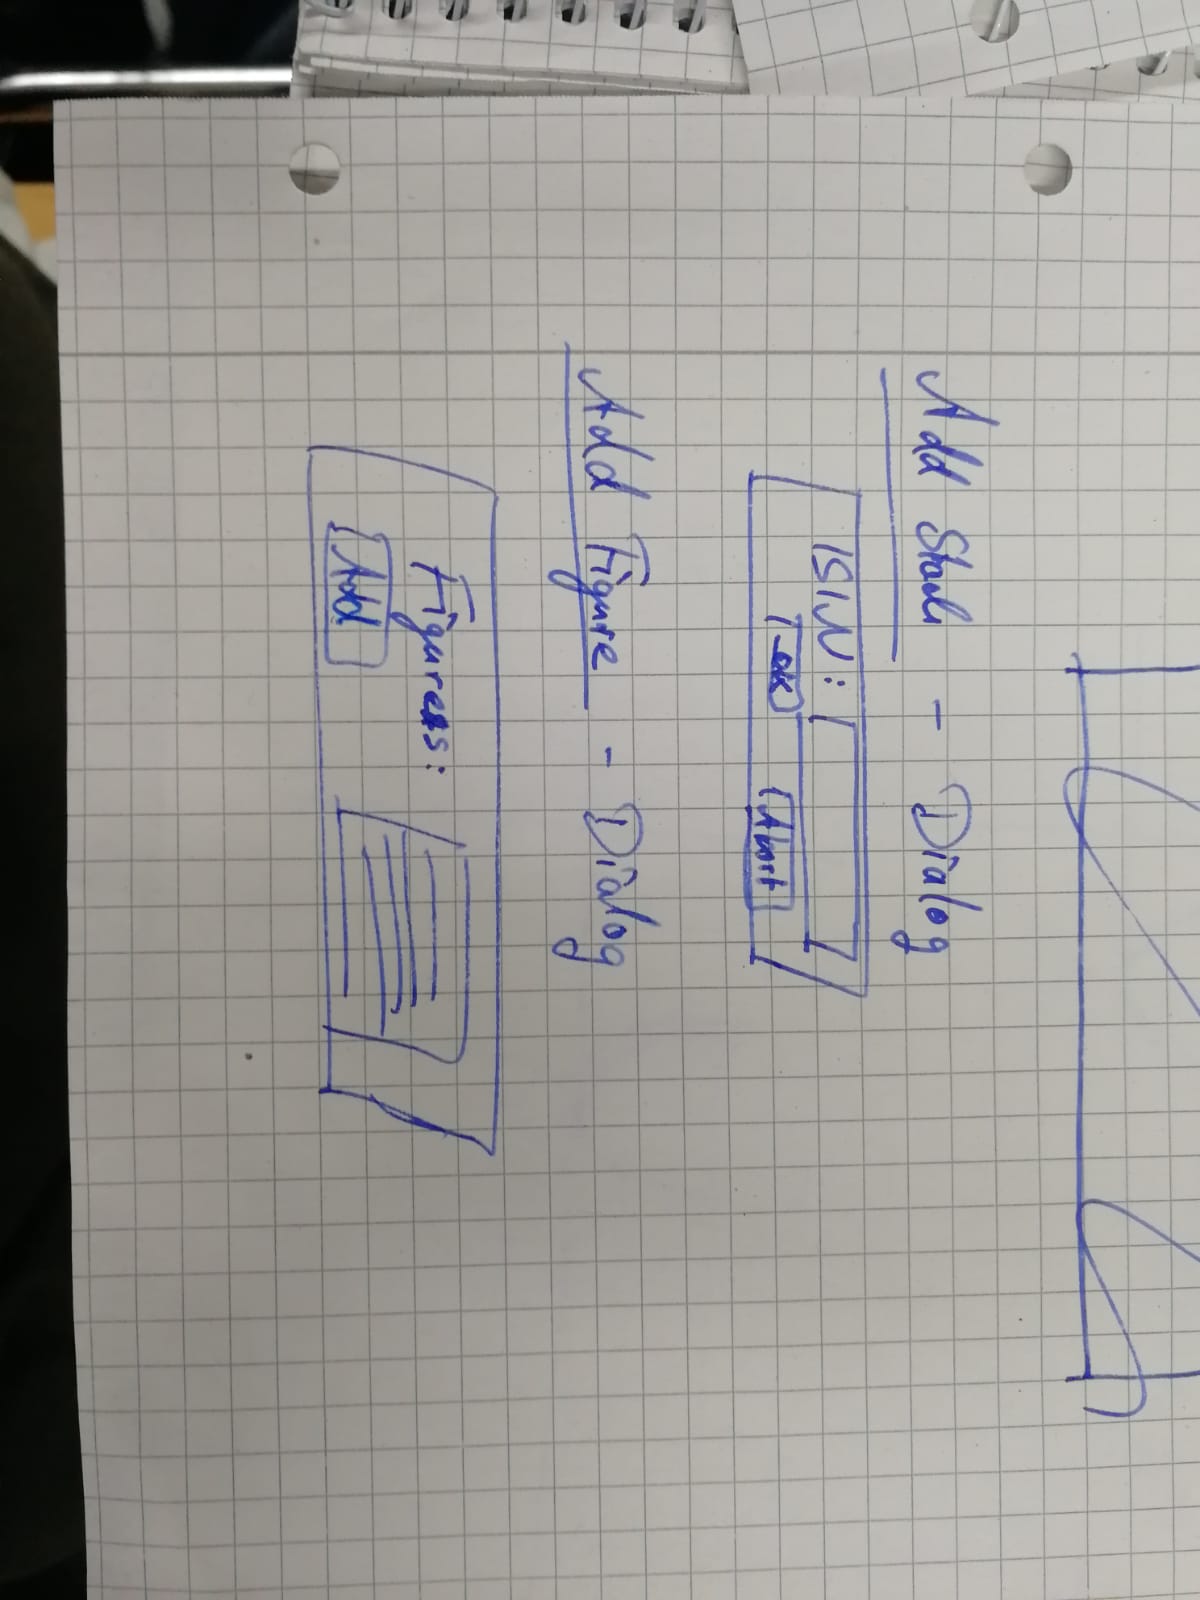 Add Stock - Dialog
ISIN:
OK Abort
Add Figure - Dialog
Figures:
Add